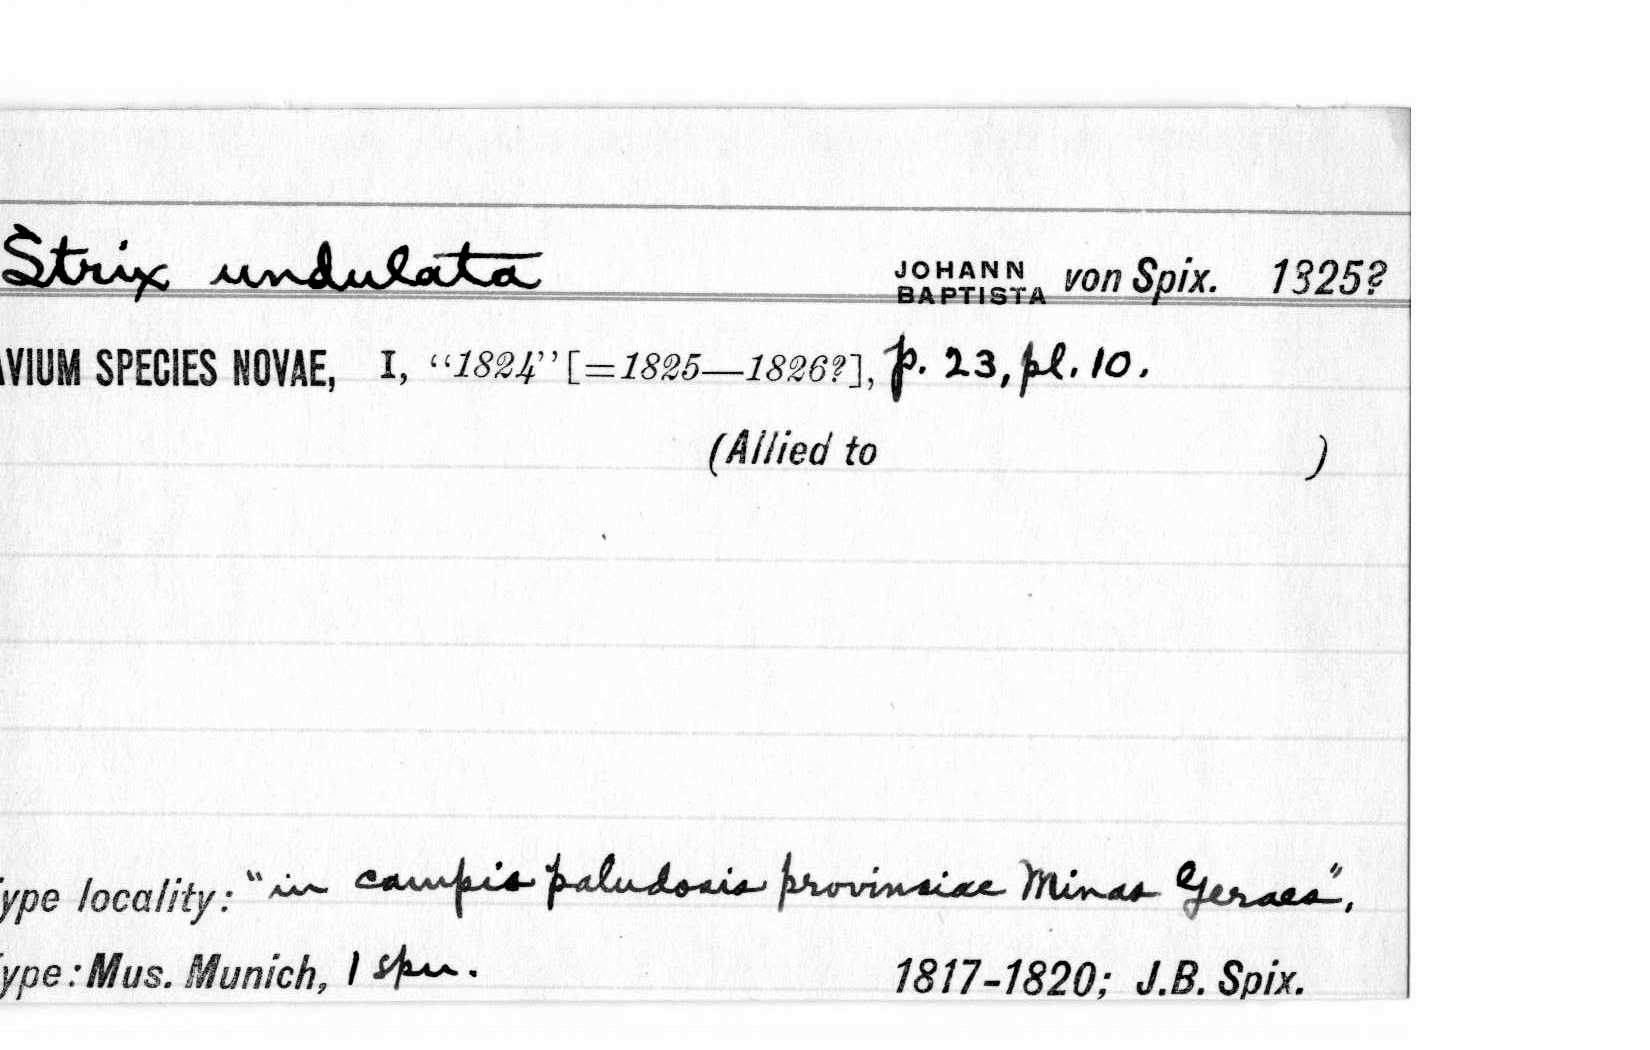 Strix undulata JOHANN BAPTISTA von Spix. 1825?
AVIUM SPECIES NOVAE, I, “1824” [=1825—1826?], p. 23, pl. 10.
(Allied to )
ype locality: "in campis paludosis provinsiae Minas Geraes",
ype: Mus. Munich, 1 spm. 1817-1820; J.B. Spix.